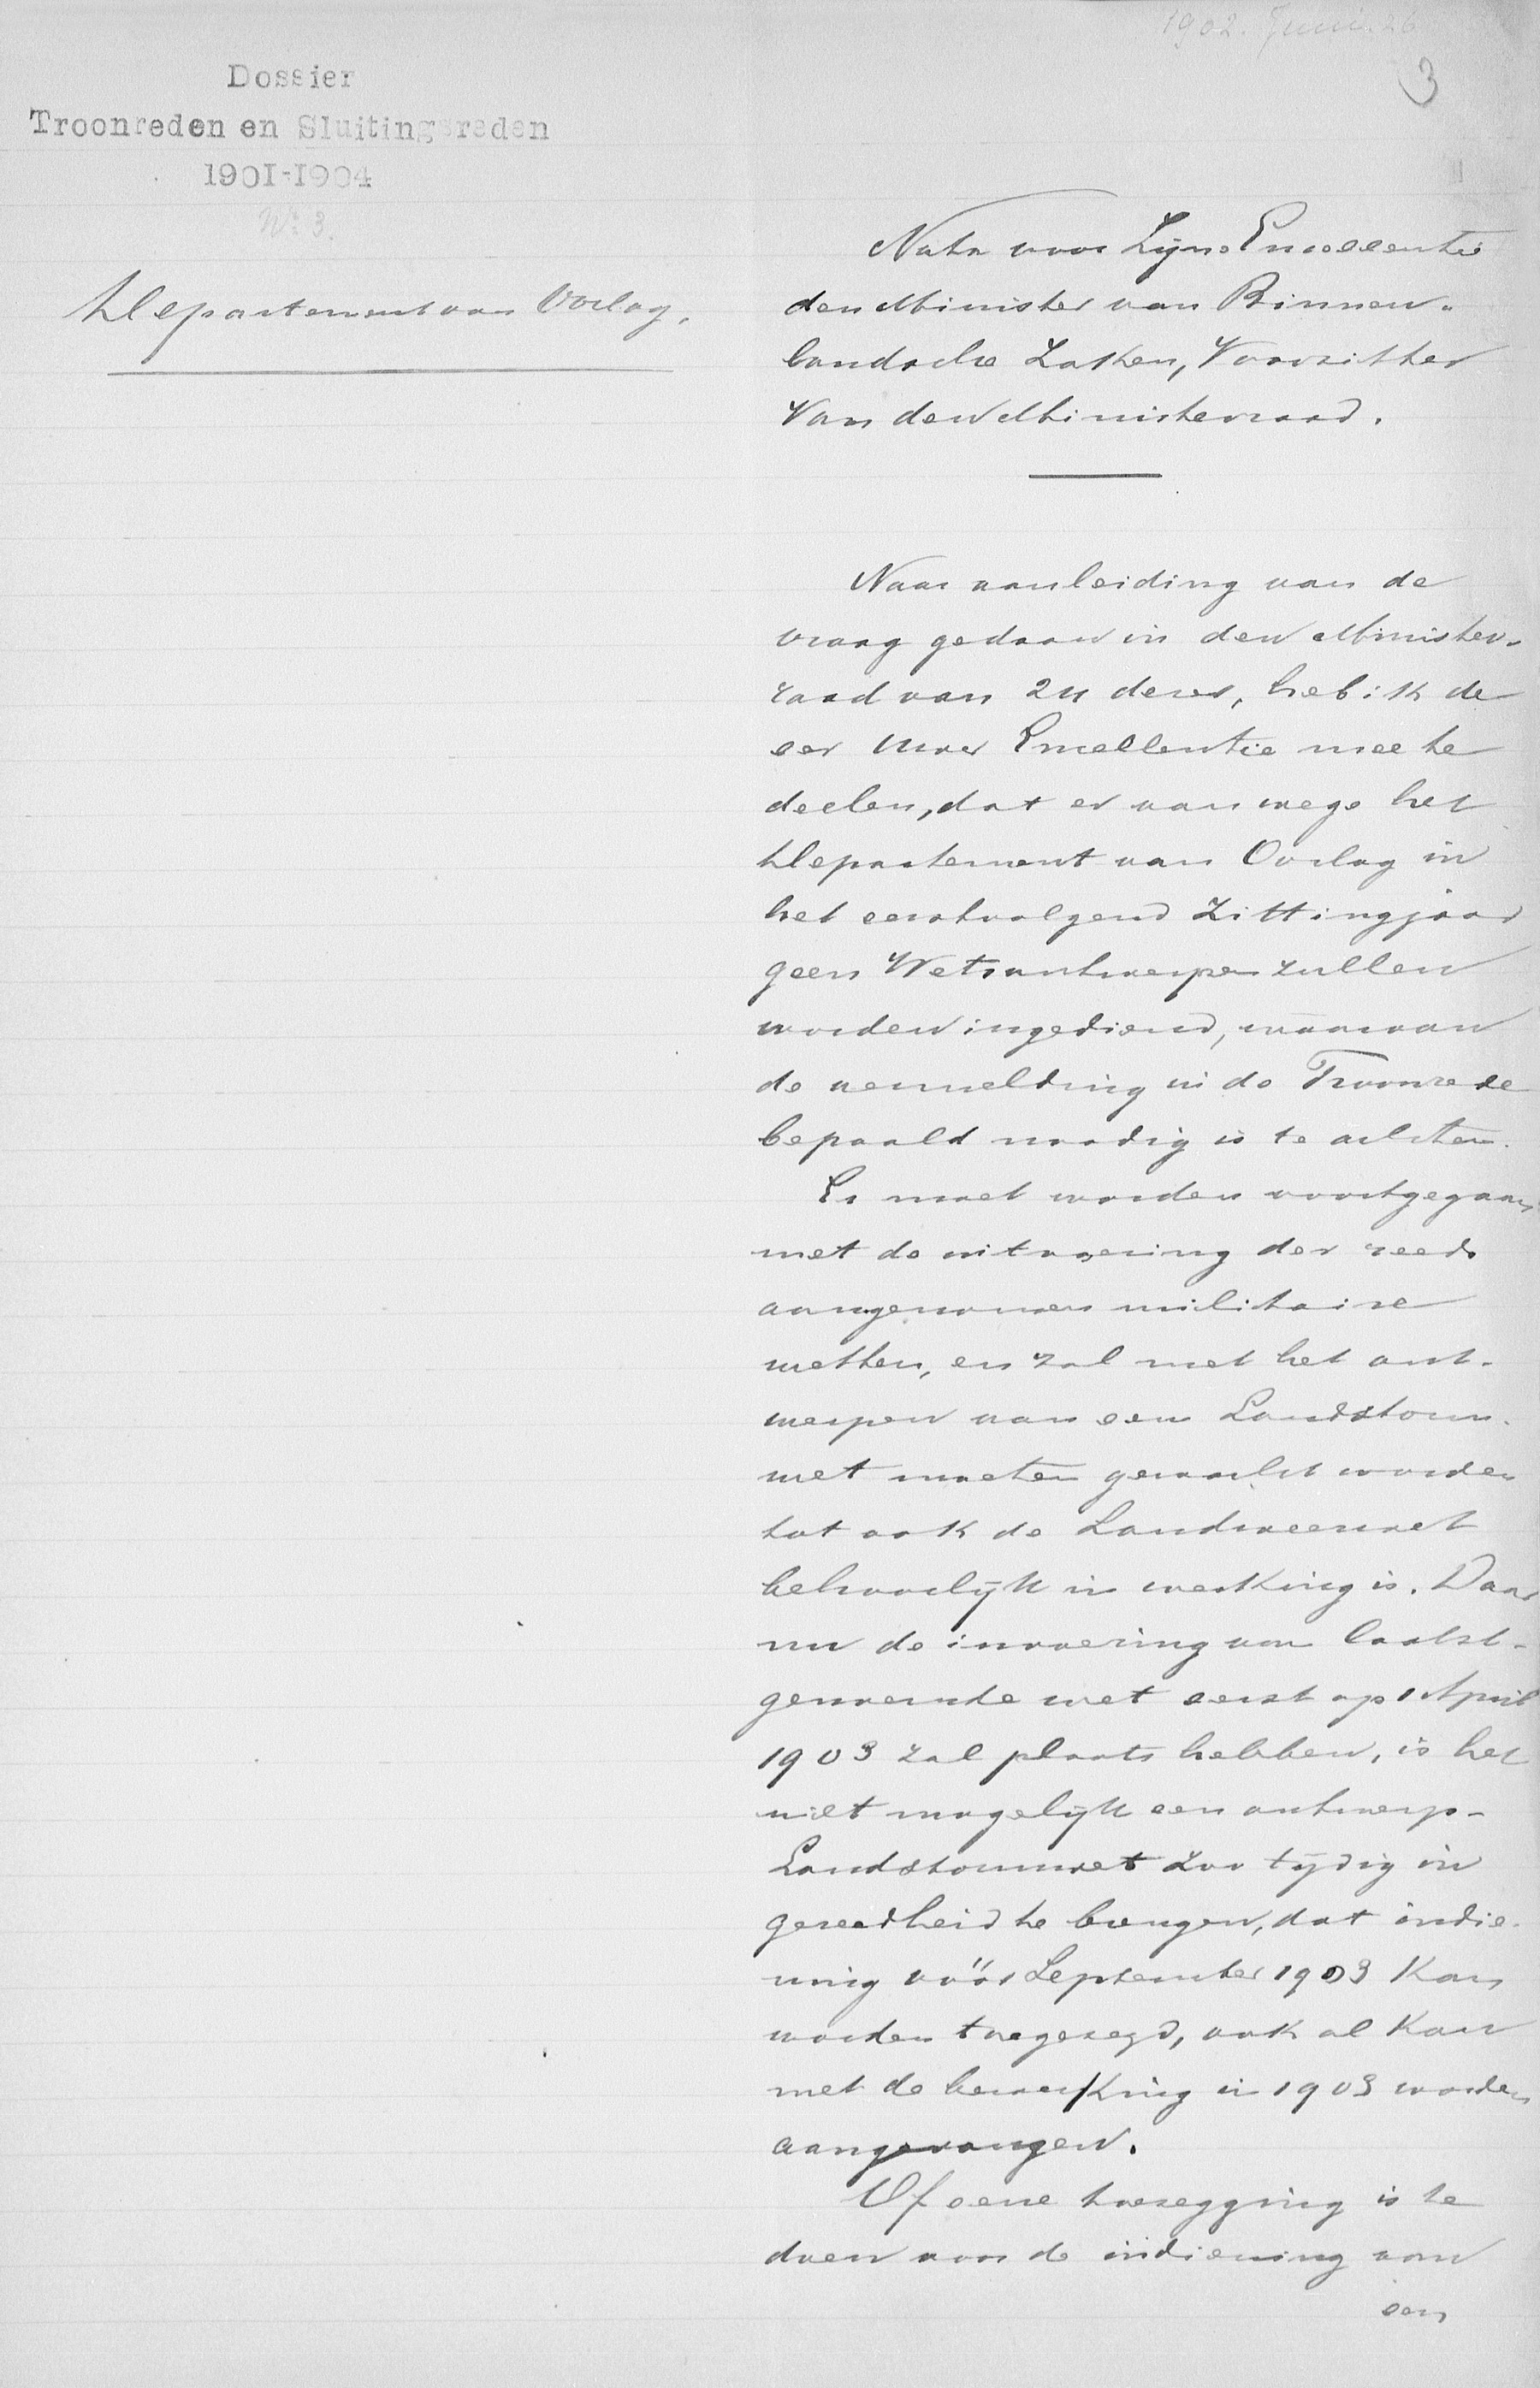 1902. Juni. 26
3
Dossier
Troonreden en Sluitingsreden
1901-1904
No 3.
Departement van Oorlog.
Nota voor Zijne Excellentie
den Minister van Binnen-
landsche Zaken, Voorzitter
van den Ministerraad.
Naar aanleiding van de
vraag gedaan in den Minister-
raad van 24 dezer, heb ik de
eer Uwe Excellentie mee te
deelen, dat er vanwege het
Departement van Oorlog in
het eerstvolgend Zittingjaar
geen Wetsontwerpen zullen
worden ingediend, waarvan
de vermelding in de Troonrede
bepaald noodig is te achten.
Er moet worden voortgegaan
met de uitvoering der reeds
aangenomen militaire
wetten, en zal met het ont-
werpen van een Landstorm-
wet moeten gewacht worden
tot ook de Landweerwet
behoorlijk in werking is. Daar
nu de invoering van laatst-
genoemde wet eerst op 1 April
1903 zal plaats hebben, is het
niet mogelijk een ontwerp-
Landstormwet zoo tijdig in
gereedheid te brengen, dat indie-
ning vóór September 1903 kan
worden toegezegd, ook al kan
met de bewerking in 1903 worden
aangevangen.
Of eene toezegging is te
doen voor de indiening van
een